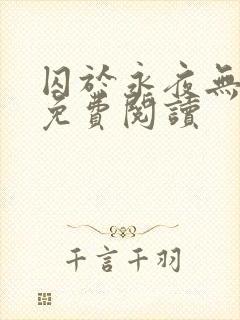 囚於永夜無
免費閱讀
千言千羽